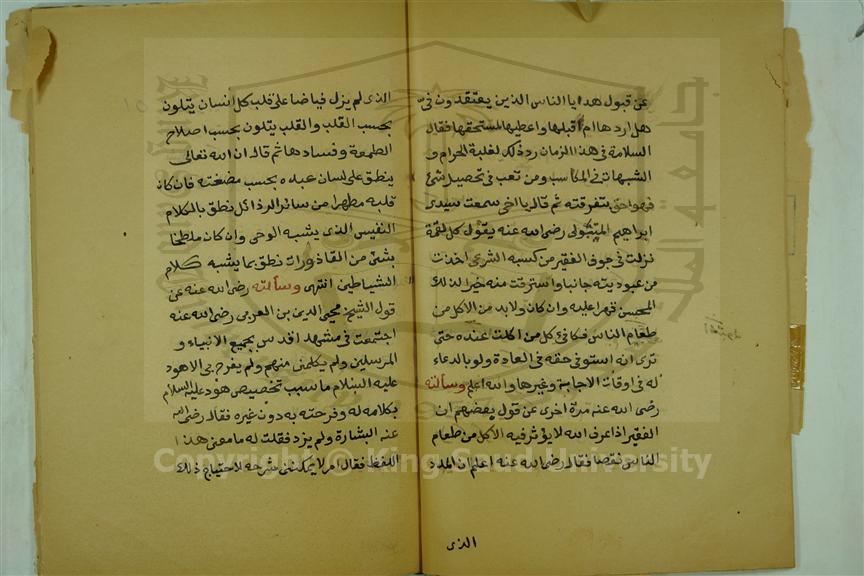 عن قبول هدايا الناس الذين يعتقدون فيّ
هل اردها ام اقبلها واعطيها لمستحقها فقال
السلامة في هذا الزمان رد ذلك لغلبة الحرام و
الشبهات في المكاسب ومن تعب في تحصيل شئ
فهو احق بتفرقته ثم قال يا اخي سمعت سيدى
ابراهيم المتبولى رضى الله عنه يقول كل لقمة
نزلت في جوف الفقير من كسبه الشرعى اخذت
من عبوديته جانبا واسترقت منه جزءا لذلك
المحسن قهرا عليه وان كان ولا بد من الاكل من
طعام الناس فكافئ كل من اكلت عنده حتى
ترى انه استوفى حقه في العادة ولو بالدعاء
له في اوقات الاجابة وغيرها والله اعلم وسألته
رضى الله عنه مرة اخرى عن قول بعضهم ان
الفقير اذا عرف الله لا يؤثر فيه الاكل من طعام
الناس نقصا فقال رضى الله عنه اعلم ان المدد
الذى
الذى لم يزل فياضا على قلب كل انسان يتلون
بحسب القلب والقلب يتلون بحسب اصلاح
الطعمة وفسادها ثم قال ان الله تعالى
ينطق على لسان عبده بحسب مضغته فان كان
قلبه مطهرا من سائر الرذائل نطق بالكلام
النفيس الذى يشبه الوحى وان كان ملطخا
بشئ من القاذورات نطق بما يشبه كلام
الشياطين انتهى وسألته رضى الله عنه عن
قول الشيخ محيى الدين بن العربى رضى الله عنه
اجتمعت في مشهد اقدس بجميع الانبياء و
المرسلين ولم يكلمنى منهم ولم يفرح بى الا هود
عليه السلام ما سبب تخصيص هود عليه السلام
بكلامه له وفرحته به دون غيره فقال رضى الله
عنه البشارة ولم يزد فقلت له ما معنى هذا
اللفظ فقال امر لا يمكننى شرحه لاحتياج ذلك
جامعة الملك سعود
Copyright © King Saud University